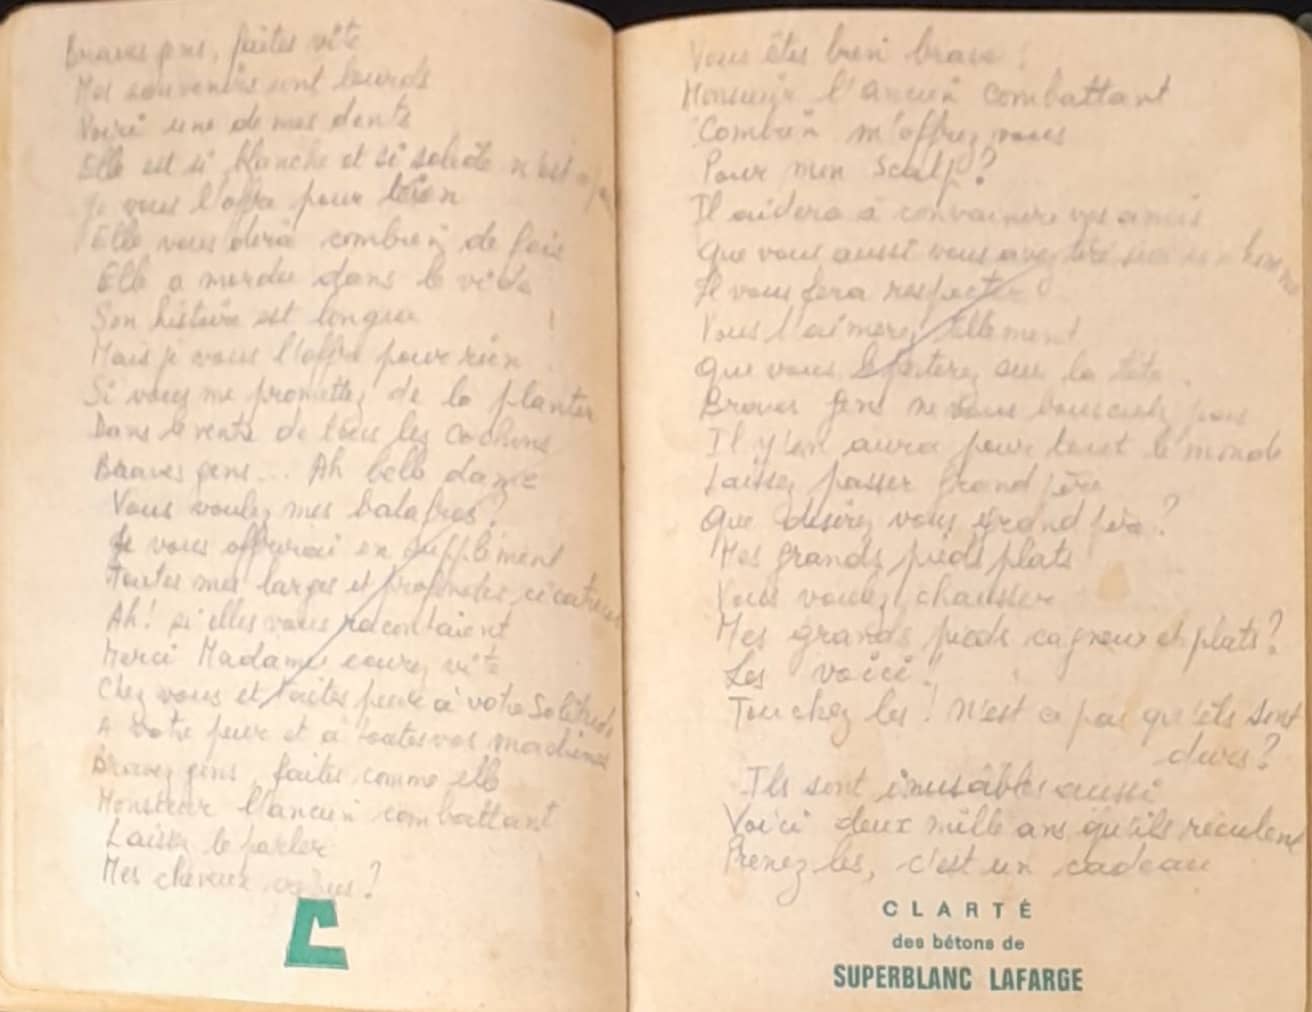 Braves gens, faites vite
Mes souvenirs sont lourds
Voici une de mes dents
Elle est si blanche et si solide n'est ce pas
Je vous l'offre pour rien
Elle vous dira combien de fois
Elle a mordu dans le vide
Son histoire est longue !
Mais je vous l'offre pour rien
Si vous me promettez de la planter
Dans le ventre de tous les cochons
Braves gens... Ah belle dame
Vous voulez mes balafres ?
Je vous offrirai en supplément
Toutes mes larges et profondes cicatrices
Ah! si elles vous racontaient
Merci Madame courez vite
Chez vous et faites peur à votre solitude
A votre peur et à toutes vos machines
Braves gens, faites comme elle
Monsieur l'ancien combattant
Laissez le parler
Mes cheveux ?
Vous êtes bien brave !
Monsieur l'ancien combattant
Combien m'offrez vous
Pour mon scalp ?
Il aidera à convaincre vos amis
Que vous aussi vous avez tiré sur un homme
Il vous fera respecter
Vous l'aimerez tellement
Que vous le porterez sur la tête.
Braves gens ne vous bousculez pas
Il y'en aura pour tout le monde
Laissez passer grand père
Que désirez vous grand père ?
Mes grands pieds plats
Vous voulez chausser
Mes grands pieds cagneux et plats ?
Les voici !
Touchez les ! N'est ce pas qu'ils sont
durs ?
Ils sont inusables aussi
Voici deux mille ans qu'ils reculent
Prenez les, c'est un cadeau
C
CLARTÉ
des bétons de
SUPERBLANC LAFARGE